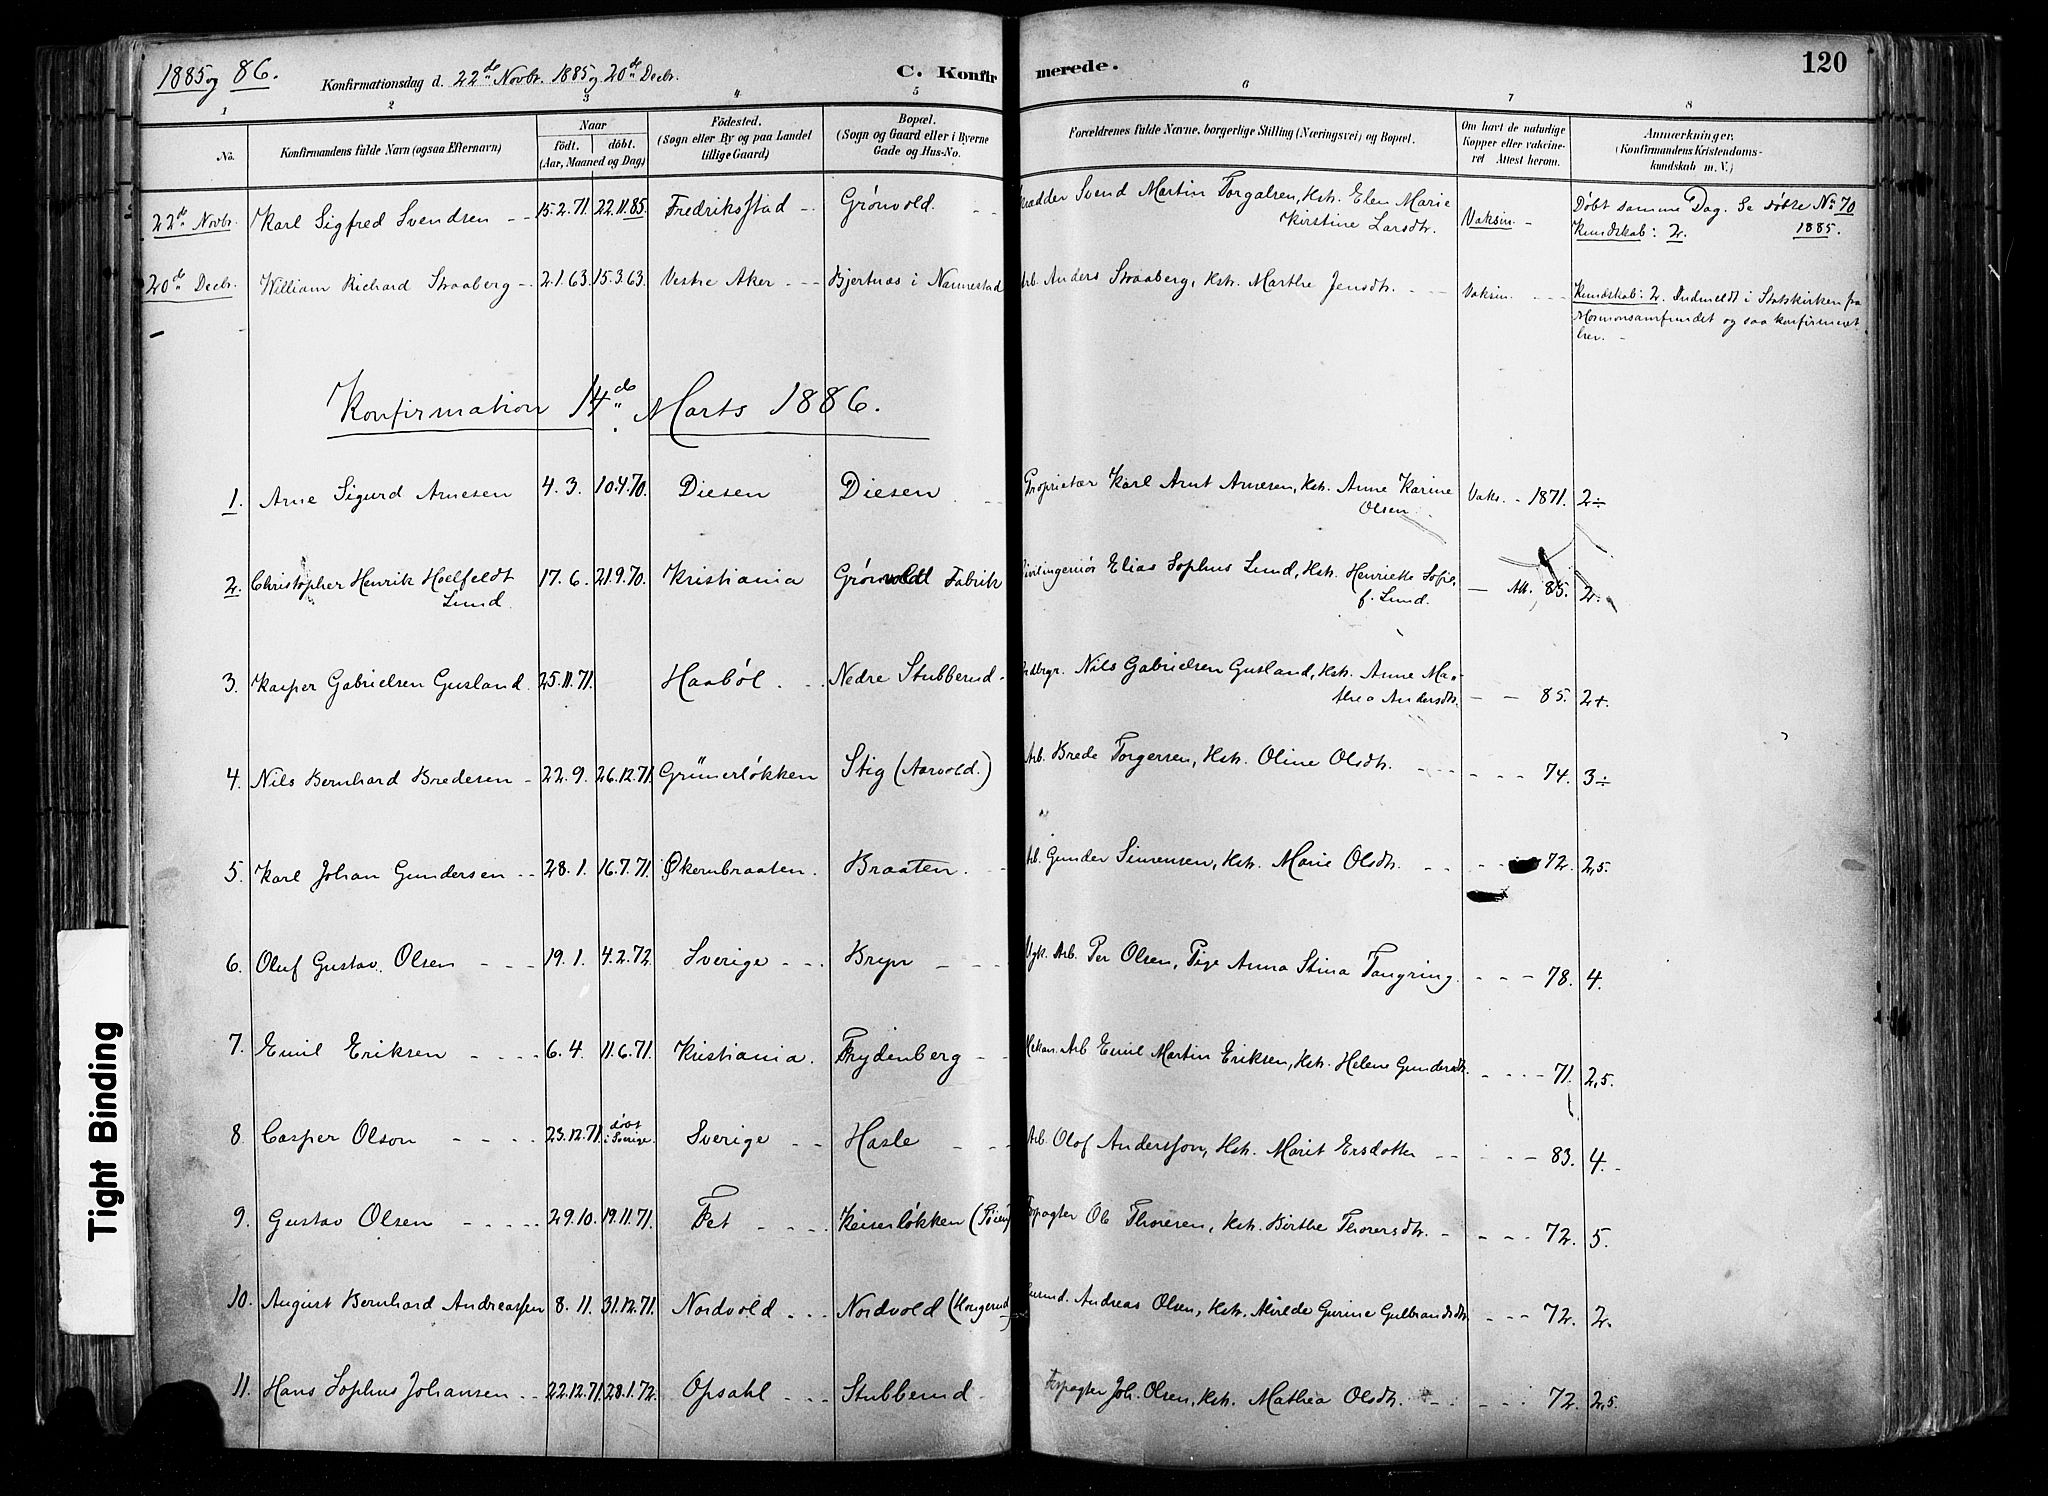 1885 og 86.
Konfirmationsdag d. 22de Novbr. 1885 og 20de Decbr.
C. Konfirmerede.
120
1 2 3 4 5 6 7 8
No.
Konfirmandens fulde Navn (ogsaa Efternavn)
Naar
födt. döbt.
(Aar, Maaned og Dag)
Födested.
(Sogn eller By og paa Landet
tillige Gaard)
Bopæl.
(Sogn og Gaard eller i Byerne
Gade og Hus-No.
Forældrenes fulde Navne, borgerlige Stilling (Næringsvei) og Bopæl.
Om havt de naturlige
Kopper eller vakcine-
ret Attest herom.
Anmærkninger.
(Konfirmandens Kristendoms-
kundskab m. V.)
22de Novbr. Karl Sigfred Svendsen 15.2.71 22.11.85. Fredriksstad Grönvold. Svend Martin Torgalsen, Hstr. Elen Marie
Kirstine Larsdtr. Vaksin. Döbt samme Dag. Se döbte No 70
1885.
Kundskab: 2.
20de Decbr. William Richard Straaberg 2.1.63 15.3.63. Vestre Aker Bjertnæs i Nannestad Arb. Anders Straaberg, Hstr. Marthe Jensdtr. Vaksin. Kundskab: 2. Indmeldt i Statskirken fra
Mormonsamfundet og saa konfirmeret
her.
Konfirmation 14de Marts 1886.
1. Arne Sigurd Arnesen 4.3. 10.4.70. Diesen Diesen Proprietær Karl Arnt Arnesen, Hstr. Anne Karine
Olsen. Vaks. 1871. 2÷
2. Christopher Henrik Hoelfeldt
Lund. 17.6. 21.9.70. Kristiania Grönvold Fabrik Civilingeniör Elias Sophus Lund, Hstr. Henriette Sofie,
f. Lund. Att. 85. 2.
3. Kasper Gabrielsen Gusland. 25.11.71. Haaböl Nedre Stubberud Nils Gabrielsen Gusland, Hstr. Anne Ma-
thea Andersdtr. 85. 2+.
4. Nils Bernhard Bredesen 22.9. 26.12.71. Grünerløkken Stig (Aarvold.) Arb. Brede Torgersen, Hstr. Oline Olsdtr. 74. 3÷
5. Karl Johan Gundersen 28.1. 16.7.71. Økernbraaten. Braaten. Arb. Gunder Simensen, Hstr. Marie Olsdtr. 72. 2,5.
6. Oluf Gustav Olsen 19.1. 4.2.72. Sverige Bryn Ugk. Arb. Per Olsen, Pige Anna Stina Tangring. 78. 4.
7. Emil Eriksen 6.4. 11.6.71. Kristiania. Frydenberg Mekan. Arb Emil Martin Eriksen, Hstr. Helene Gundersdtr. 71. 2,5.
8. Casper Olson 23.12.71. döbt
i Sverige. Sverige Hasle Arb. Olof Andersson, Hstr. Marit Ersdotter 83. 4.
9. Gustav Olsen 29.10. 19.11.71. Fet Keiserløkken (Töien) Forpagter Ole Thoresen, Hstr. Birthe Thoresdtr. 72. 5.
10. August Bernhard Andreassen 8.11. 31.12.71. Nordvold Nordvold (Kongerud) Andreas Olsen, Hstr. Milde Gurine Gulbrandsdtr. 72. 2.
11. Hans Sophus Johansen 22.12.71. 28.1.72. Opsahl Stubberud Forpagter Joh. Olsen, Hstr. Mathea Olsdtr. 72. 2,5.
Tight Binding